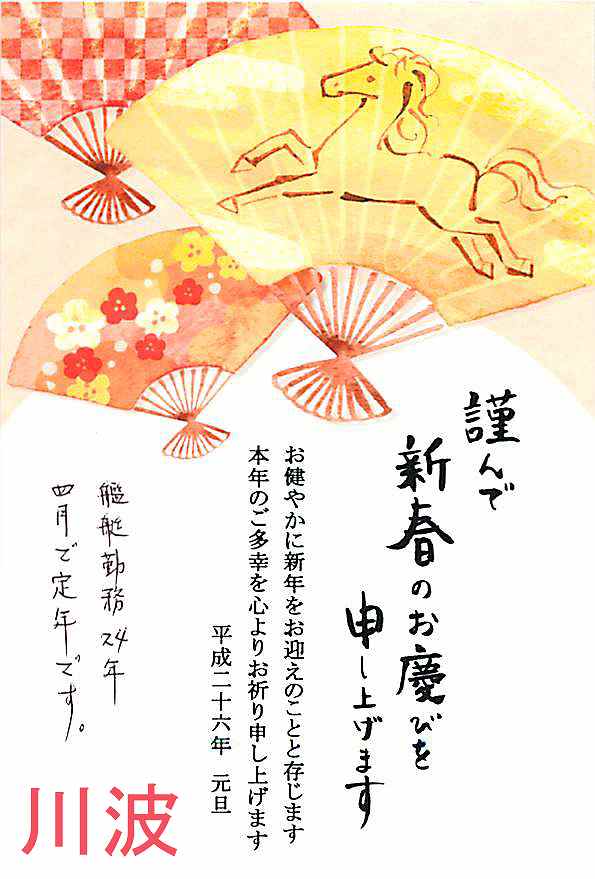 謹んで
新春のお慶びを
申し上げます
お健やかに新年をお迎えのことと存じます
本年のご多幸を心よりお祈り申し上げます
平成二十六年 元旦
艦艇勤務24年
四月で定年です。
川波